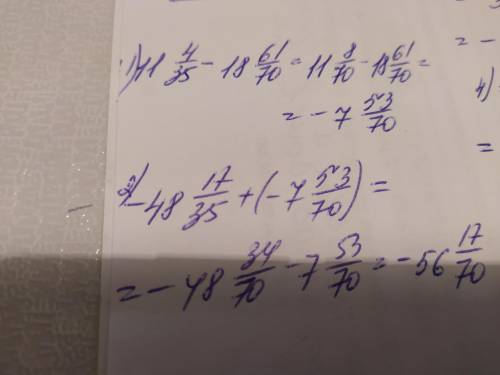 1) 11 4/35 - 18 61/70 = 11 8/70 - 18 61/70 =
= - 7 53/70
2) - 48 17/35 + (- 7 53/70) =
= - 48 34/70 - 7 53/70 = - 56 17/70
= -
4)
=